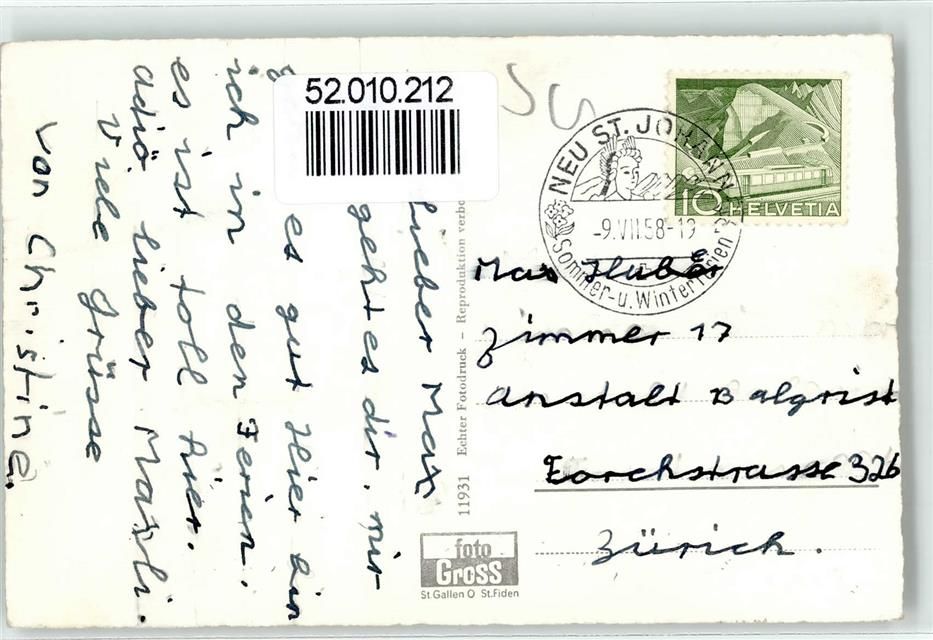 52.010.212
lieber Max
gehts dir. mir
es gut Hier bin
ich in den Ferien.
es ist toll hier.
adiö lieber Maxli.
Viele Grüsse
von Christine
11931 Echter Fotodruck - Reproduktion verbo
foto
Gross
St.Gallen O St.Fiden
NEU ST. JOHANN
-9.VII.58-19
Sommer-u. Winterferien
10 HELVETIA
Max Huber
Zimmer 17
Anstalt Balgrist
Forchstrasse 326
Zürich.